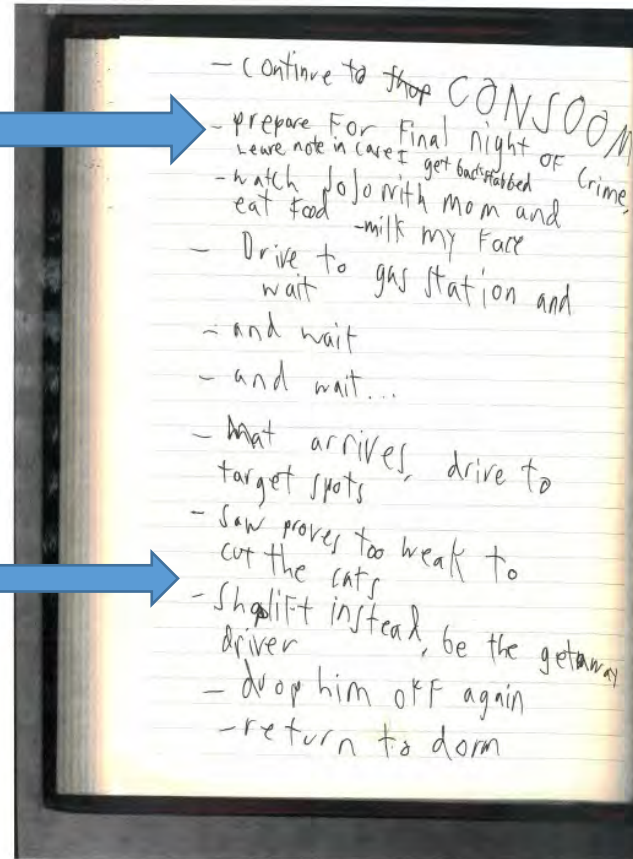 - Continue to shop CONSOOM
- prepare For Final night of Crime,
Leave note in case I get backstabbed
- watch JoJo with mom and
eat Food -milk my Face
- Drive to gas station and
wait
- and wait
- and wait...
- Mat arrives, drive to
target spots
- Saw proves too weak to
cut the cats
- Shoplift instead, be the getaway
driver
- drop him off again
- return to dorm